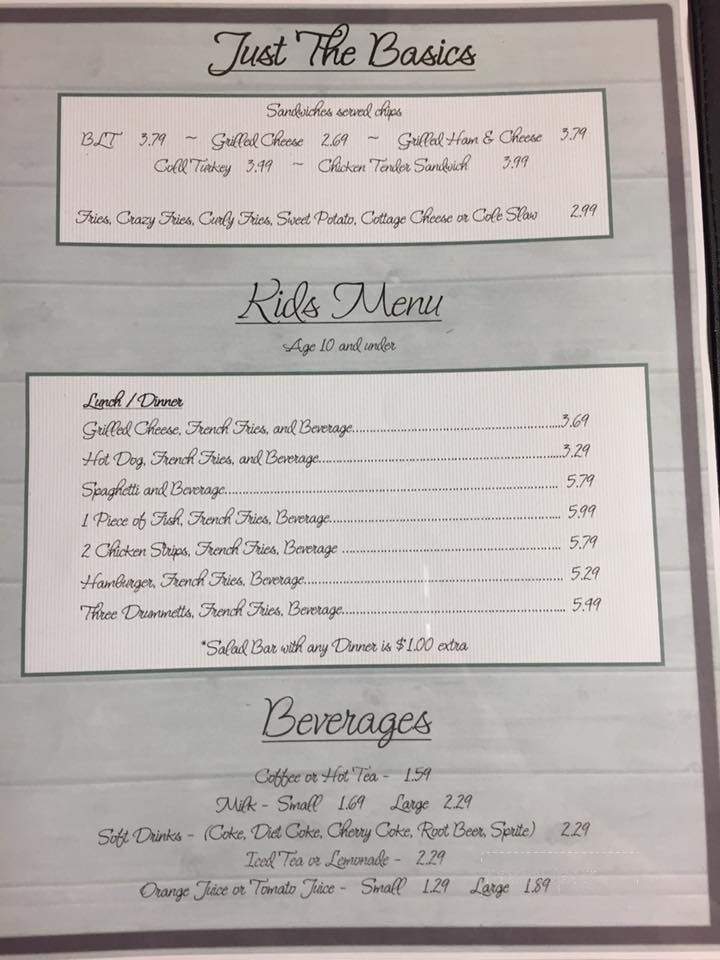 Just The Basics
Sandwiches served chips
BLT 3.79 ~ Grilled Cheese 2.69 ~ Grilled Ham & Cheese 3.79
Cold Turkey 3.49 ~ Chicken Tender Sandwich 3.99
Fries, Crazy Fries, Curly Fries, Sweet Potato, Cottage Cheese or Cole Slaw 2.99
Kids Menu
Age 10 and under
Lunch / Dinner
Grilled Cheese, French Fries, and Beverage 3.69
Hot Dog, French Fries, and Beverage 3.29
Spaghetti and Beverage 5.79
1 Piece of Fish, French Fries, Beverage 5.99
2 Chicken Strips, French Fries, Beverage 5.79
Hamburger, French Fries, Beverage 5.29
Three Drummetts, French Fries, Beverage 5.49
*Salad Bar with any Dinner is $1.00 extra
Beverages
Coffee or Hot Tea - 1.59
Milk - Small 1.69 Large 2.29
Soft Drinks - (Coke, Diet Coke, Cherry Coke, Root Beer, Sprite) 2.29
Iced Tea or Lemonade - 2.29
Orange Juice or Tomato Juice - Small 1.29 Large 1.89